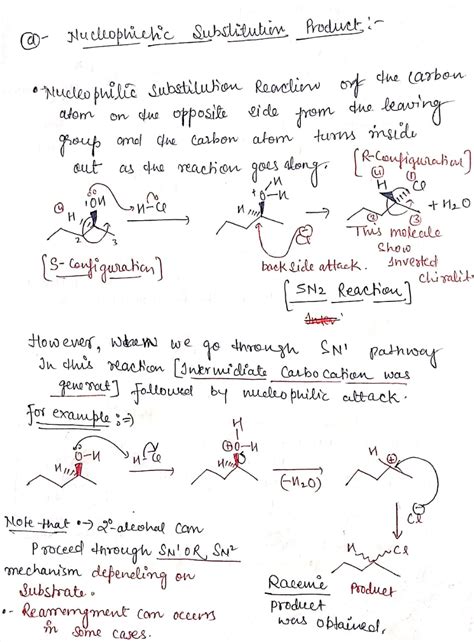 (a)- Nucleophilic Substitution Product:-
• Nucleophilic substitution Reaction of the carbon
atom on the opposite side from the leaving
group and the carbon atom turns inside
out as the reaction goes along.
[R-Configuration]
H
OH
H-Cl
H
2
3
4
H
O-H
H
Cl
1
2
3
4
+ H2O
Cl
[S-Configuration]
back side attack.
This molecule
show
Inverted
Chiralit
[SN2 Reaction]
However, when we go through SN1 pathway
In this reaction [Intermidiate Carbocation was
generat] followed by nucleophilic attack.
for example :=>
O-H
H
H-Cl
H
O-H
H
(-H2O)
H
Cl
Note that •→ 2°-alcohal can
Proceed through SN1 OR, SN2
mechanism depending on
Substrate.
•- Rearrengment can occurs
in some cases.
H
Cl
Product
Racemic
product
was obtained.